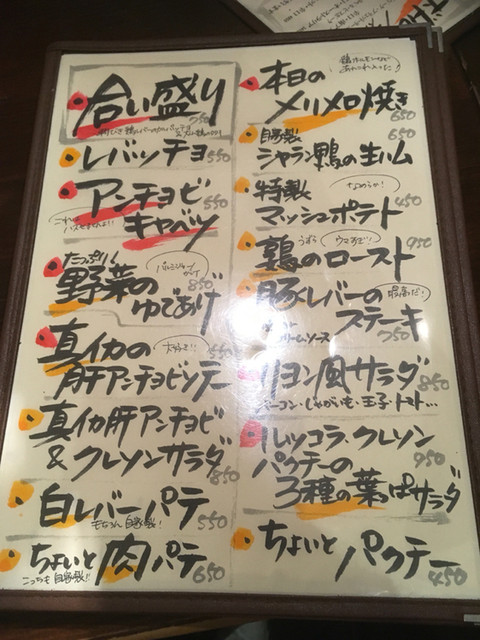 合い盛り
750
レバッチョ 550
アンチョビ
キャベツ
550
これはハズせませんよ!!
たっぷり!
野菜の
ゆであげ
850
真イカの
肝アンチョビソテー
真イカ肝アンチョビ
&クレソンサラダ
850
白レバーパテ
もちろん自家製!
550
ちょいと肉パテ
こっちも自家製!!
650
本日の
メリメロ焼き
650
自家製
シャラン鴨の生ハム
650
特製
なめらか!
マッシュポテト
450
うずら
ウマすぎ!
鶉のロースト
950
豚レバーの
最高だ!
ステーキ
クリームソース
750
リヨン風サラダ
850
ベーコン・じゃがいも・玉子・トマト…
ルッコラ・クレソン
パクチーの
950
3種の葉っぱサラダ
ちょいとパクチー
450